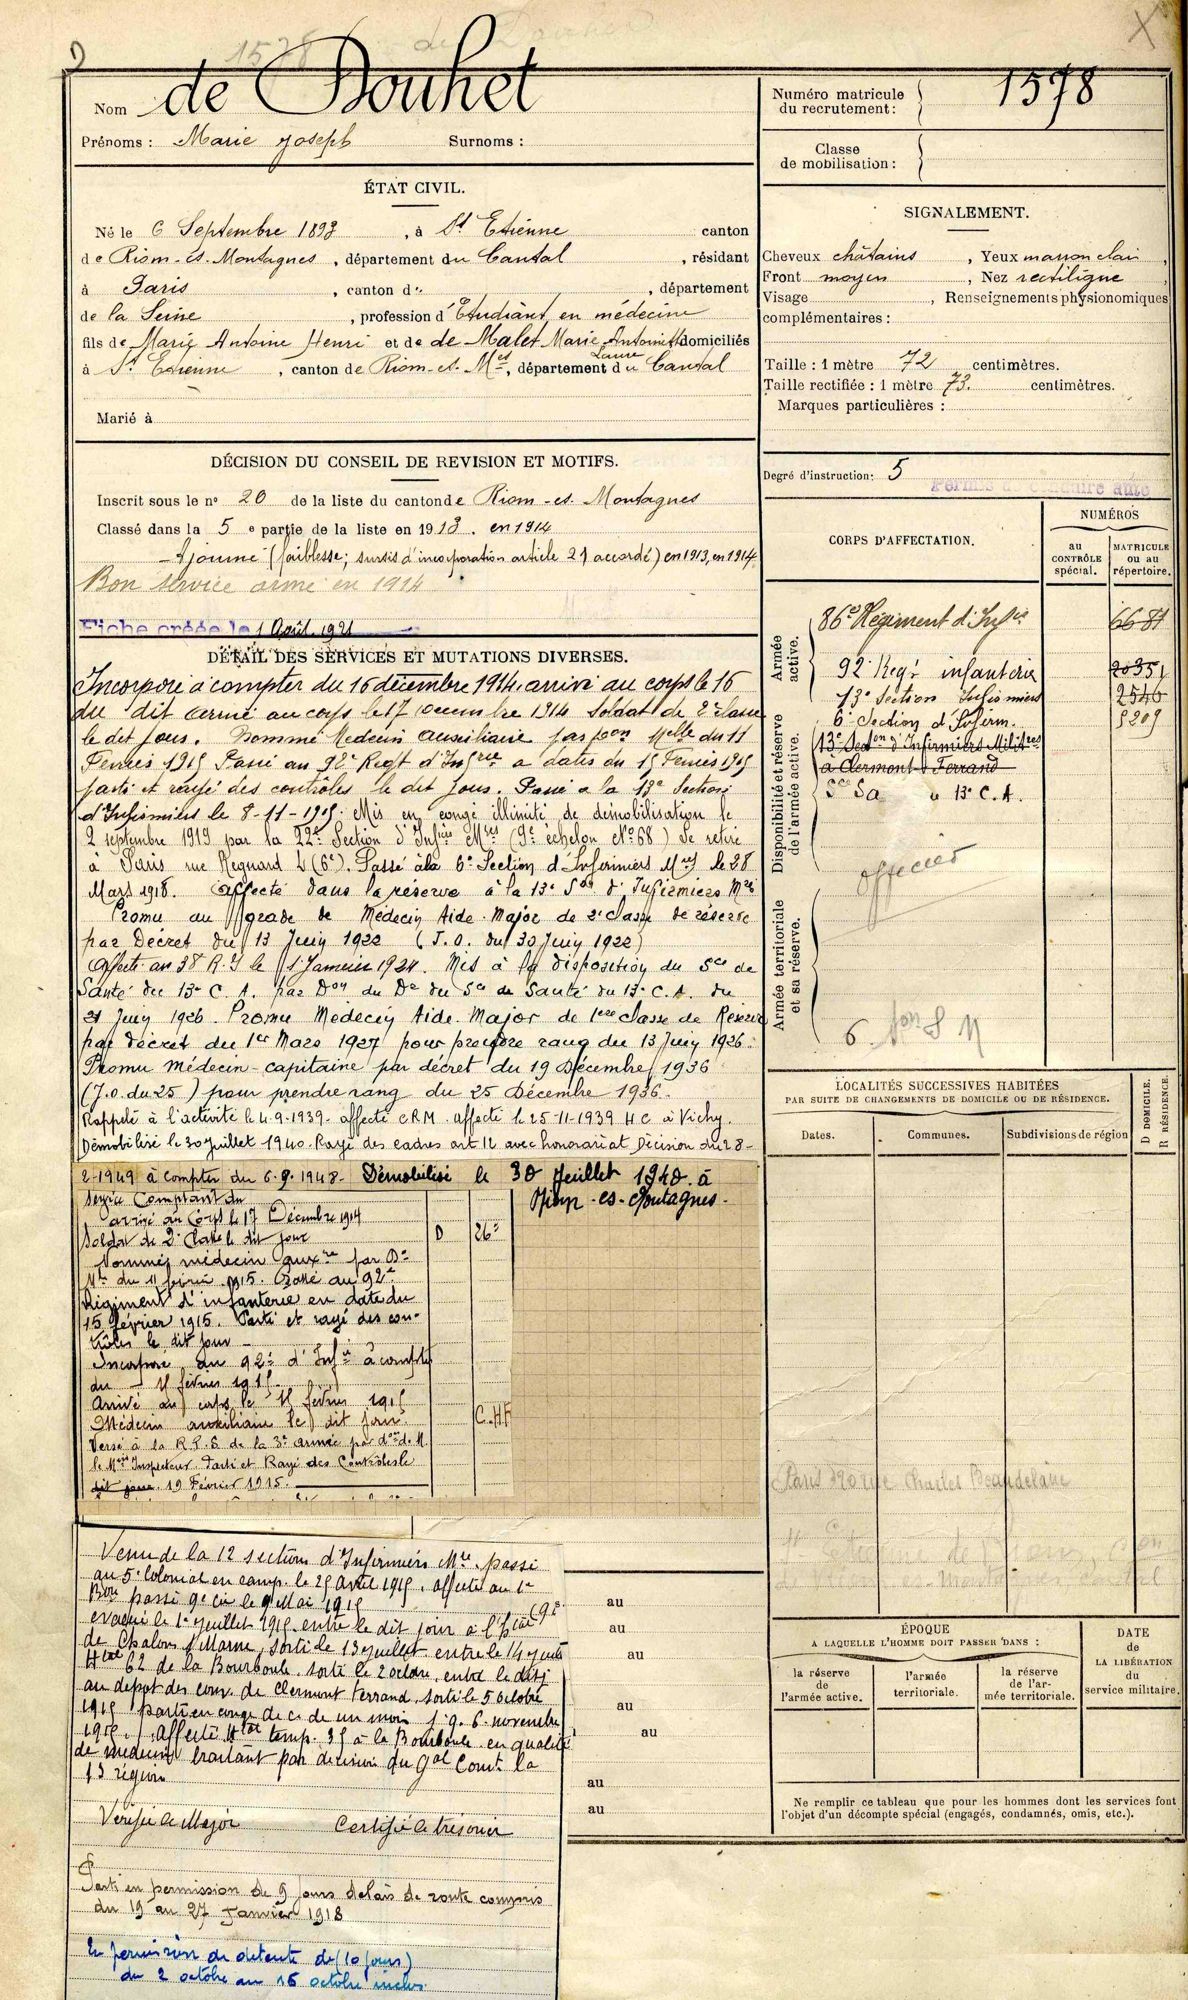 1578
de Douhet
Nom
Prénoms : Marie Joseph Surnoms :
ÉTAT CIVIL.
Né le 6 Septembre 1893, à St Etienne canton
de Riom-es-Montagnes, département du Cantal, résidant
à Paris, canton d , département
de la Seine, profession d'Etudiant en médecine
fils de Marie Antoine Henri et de de Malet Marie Antoinette domiciliés
Laure
à St Etienne, canton de Riom-es-Mes, département du Cantal
Marié à
DÉCISION DU CONSEIL DE REVISION ET MOTIFS.
Inscrit sous le no 20 de la liste du canton de Riom-es-Montagnes
Classé dans la 5 e partie de la liste en 1913. en 1914
- Ajourné (faiblesse; sursis d'incorporation article 21 accordé) en 1913, en 1914
Bon service armé en 1914
Fiche créée le 1 Août 1921
DÉTAIL DES SERVICES ET MUTATIONS DIVERSES.
Incorporé à compter du 16 décembre 1914, arrivé au corps le 16
du dit arrivé au corps le 17 Decembre 1914 Soldat de 2e classe
le dit jour. Nommé Medecin auxiliaire par Don Melle du 11
Fevrier 1915 Passé au 92e Regt d'Inf a dater du 15 Fevrier 1915
parti et rayé des contrôles le dit jour. Passé a la 13e Section
d'Infirmiers le 8-11-1915. Mis en congé illimité de démobilisation le
2 septembre 1919 par la 22e Section d'Infiers Mres (9e échelon No 68) Se retire
à Paris rue Regnard 4 (6e). Passé à la 6e Section d'Infirmiers Mres le 28
Mars 1918. Affecté dans la réserve à la 13e Son d'Infirmiers Mres
Promu au grade de Médecin Aide-Major de 2e classe de réserve
par Décret du 13 Juin 1922 (J.O. du 30 Juin 1922)
Affecté au 38 R.I le 1 Janvier 1924. Mis à la disposition du Sce de
Santé du 13e C.A. par Don du Dr du Sce de Santé du 13e C.A. du
21 Juin 1926. Promu Médecin Aide-Major de 1ere classe de Réserve
par décret du 1er Mars 1927 pour prendre rang du 13 Juin 1926.
Promu médecin-capitaine par décret du 19 Décembre 1936
(J.o. du 25) pour prendre rang du 25 Décembre 1936.
Rappelé à l'activité le 4-9-1939. affecté CRM. affecté le 25-11-1939 HC à Vichy.
Démobilisé le 30 juillet 1940. Rayé des cadres art 12 avec honorariat Décision du 28-
2-1949 à compter du 6.9.1948. Démobilisé le 30 Juillet 1940 à
Riom-es-Montagnes.
Service Comptant du
arrivé au Corps le 17 Décembre 1914
Soldat de 2e Classe le dit jour D 26e
Nommé médecin auxre par Don
Mle du 11 février 1915. Passé au 92e
Régiment d'infanterie en date du
15 février 1915. Parti et rayé des con-
trôles le dit jour
Incorporé au 92e d'Infie à compter
du 15 février 1915
Arrivé au corps le 15 février 1915
Médecin auxiliaire le dit jour. C.H.R
Versé à la R.P.S. de la 3e armée par don de M.
le Mcin Inspecteur. Parti et Rayé des Contrôles le
dit jour 19 Février 1915.
Venu de la 12 section d'Infirmiers Mre. passé
au 5e Colonial en camp. le 25 avril 1915. affecté au 1e
Bon passé 9e Cie le 9 Mai 1915
evacué le 1e juillet 1915 entre le dit jour à l'hptal
de Chalons s/Marne, sorti le 13 juillet entre le 14 juil
Htal 62 de la Bourboule. sorti le 2 octobre, entré le dit j
au depot des conv. de Clermont Ferrand, sorti le 5 octobre
1915 parti en congé de c. de un mois j.q. 6 novembre
1915. Affecté Htal temp. 35 à la Bourboule en qualité
de medecin traitant par decision du Gal Comt. la
13 région
Vérifié le Major Certifié le trésorier
Parti en permission de 9 jours délais de route compris
du 19 au 27 Janvier 1918
En permission de détente de (10 jours)
du 2 octobre au 16 octobre inclus.
Numéro matricule
du recrutement : 1578
Classe
de mobilisation :
SIGNALEMENT.
Cheveux châtains, Yeux marron clair,
Front moyen, Nez rectiligne,
Visage , Renseignements physionomiques
complémentaires :
Taille : 1 mètre 72 centimètres.
Taille rectifiée : 1 mètre 73. centimètres.
Marques particulières :
Degré d'instruction : 5
Permis de conduire auto
CORPS D'AFFECTATION.
NUMÉROS
au
CONTRÔLE
spécial.
MATRICULE
ou au
répertoire.
Armée
active.
86e Régiment d'Infie 6681
92e Regt infanterie 20351
13e Section Infirmiers 2546
Disponibilité et réserve
de l'armée active.
6e Section d'Infirm. 5209
13e Secon d'Infirmiers Militres
à Clermont-Ferrand
Sce Sa u 13e C.A.
Officier
Armée territoriale
et sa réserve.
6 Son I M
LOCALITÉS SUCCESSIVES HABITÉES
PAR SUITE DE CHANGEMENTS DE DOMICILE OU DE RÉSIDENCE.
D DOMICILE.
R RÉSIDENCE.
Dates.
Communes.
Subdivisions de région
Paris rue Charles Beaudelaire
au
au
au
au
au
au
au
ÉPOQUE
A LAQUELLE L'HOMME DOIT PASSER DANS :
la réserve
de
l'armée active.
l'armée
territoriale.
la réserve
de l'ar-
mée territoriale.
DATE
de
LA LIBÉRATION
du
service militaire.
Ne remplir ce tableau que pour les hommes dont les services font
l'objet d'un décompte spécial (engagés, condamnés, omis, etc.).